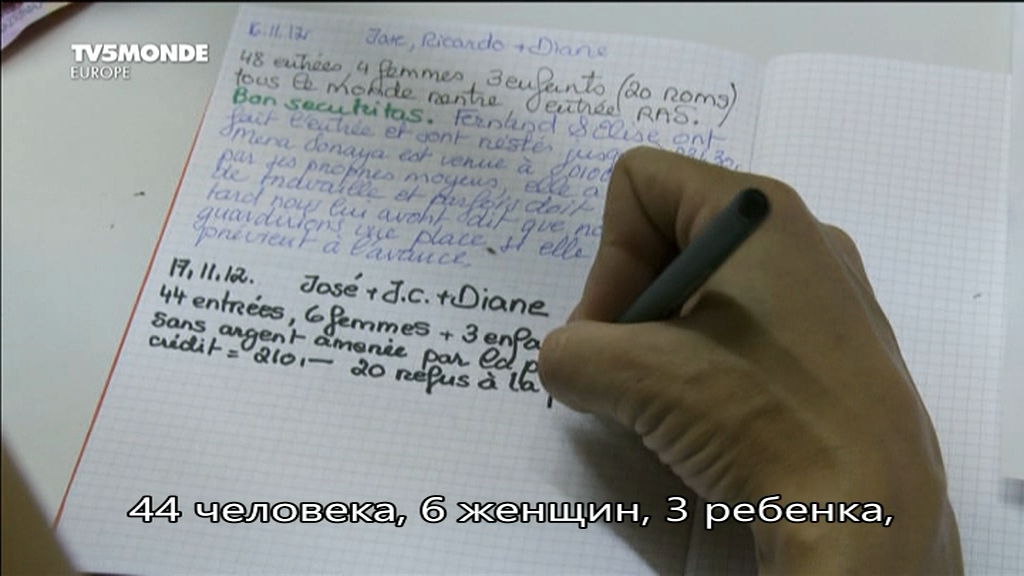 TV5MONDE
EUROPE
16.11.12. José, Ricardo + Diane
48 entrées, 4 femmes, 3 enfants (20 roms)
tous le monde rentre entrée RAS.
Bon securitas. Fernand & Elise ont
fait l'entrée et sont restés
est venue à
par ses propres moyens, elle a
de travaille et parfois doit
tard nous lui avont dit que
guardurions une place si elle
prévient à l'avance,
17.11.12. José + J.C. + Diane
44 entrées, 6 femmes + 3 enfa
sans argent amenée par la
crédit = 210.— 20 refus à la
44 человека, 6 женщин, 3 ребенка,